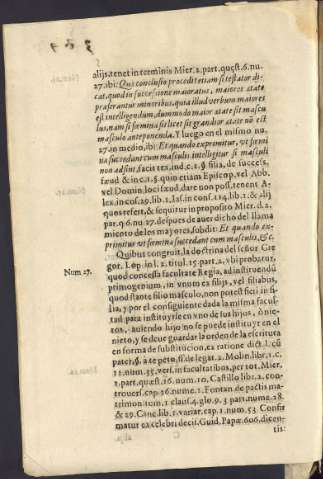 alijs, tenet in terminis Mier. 2. part. quæst. 6. nu.
27. ibi: Quæ conclusio procedit etiam si testator di-
cat, quod in successione maioratus, maiores ætate
præferantur minoribus, quia illud verbum maiores
est intelligendum, dummodo maior ætate sit mascu
lus, nam si fœmina scilicet sit grandior ætate nõ est
masculo anteponenda. Y luego en el mismo nu.
27. en medio, ibi: Et quando exprimitur, vt fœmi
næ succedant cum masculis intelligitur si masculi
non adsint, facit tex. ind. c. 1. §. filia, de succes.
fæud. & in c. 1. §. quo etiam Episcop. vel Abb.
vel Domin. loci fæud. dare non post. tenent A-
lex. in cos. 29. lib. 1. Ias. in cons. 114. lib. 1. & alij
quos refert, & sequitur in proposito Mier. d. 2.
par. q. 6. nu. 27. despues de auer dicho del llama
miento de los mayores, subdit: Et quando ex-
primitur vt fœmina succedant cum masculo, &c.
Quibus congruit, la doctrina del señor Gre
Num 27.
gor. Lop. in l. 2. titul. 15. part. 2. vbi probatur,
quod concessa facultate Regia, ad instituendũ
primogenium, in vnum ex filijs, vel filiabus,
quod stante filio masculo, non potest fieri in fi-
lia, y por el consiguiente dada la misma facul-
tad para instituyrle en vno de sus hijos, ò nie-
tos, auiendo hijo no se puede instituyr en el
nieto, y se deue guardar la orden de la escritura
en forma de substitucion, ex ratione dict. l. cũ
pater, §. à te peto, ff. de legat. 2. Molin. libr. 1. c.
11. num. 35. vers. in facultatibus, per tot. Mier.
1. part. quæst. 16. num. 10. Castillo lib. 2. con-
trouers. cap. 16. nume. 1. Fontan. de pactis ma-
trimon. tom. 1. claus. 4. glo. 9. 3. part. nume. 28.
& 29. Cāne. lib. 1. variar. cap. 1. num. 53. Confir
matur ex celebri decis. Guid. Papæ 606. dicen-
tis: